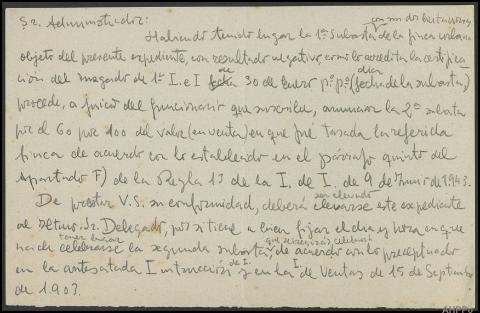 Sr. Administrador:
con sus dos licitaciones
Habiendo tenido lugar la 1ª Subasta de la finca urbana
objeto del presente expediente, con resultado negativo, como lo acredita la certifica-
ción del Juzgado de 1ª I. e I. de 30 de Enero pº pº (día fecha de la subasta)
procede, a juicio del funcionario que suscribe, anunciar la 2ª subasta
por el 60 por 100 del valor (en venta) en que fué tasada la referida
finca de acuerdo con lo establecido en el párrafo quinto del
apartado F) de la Regla 13 de la I. de I. de 9 de Junio de 1943.
ser elevado
De prestar V.S. su conformidad, deberá elevarse este expediente
al Iltmo. Sr. Delegado, por si tiene a bien fijar el día y hora en que
tener lugar
que se celebrará
ha de celebrarse la segunda subasta, de acuerdo con lo preceptuado
en la antecitada Instrucción de I. y en la I de Ventas de 15 de Septiembre
de 1903.
AHPPo